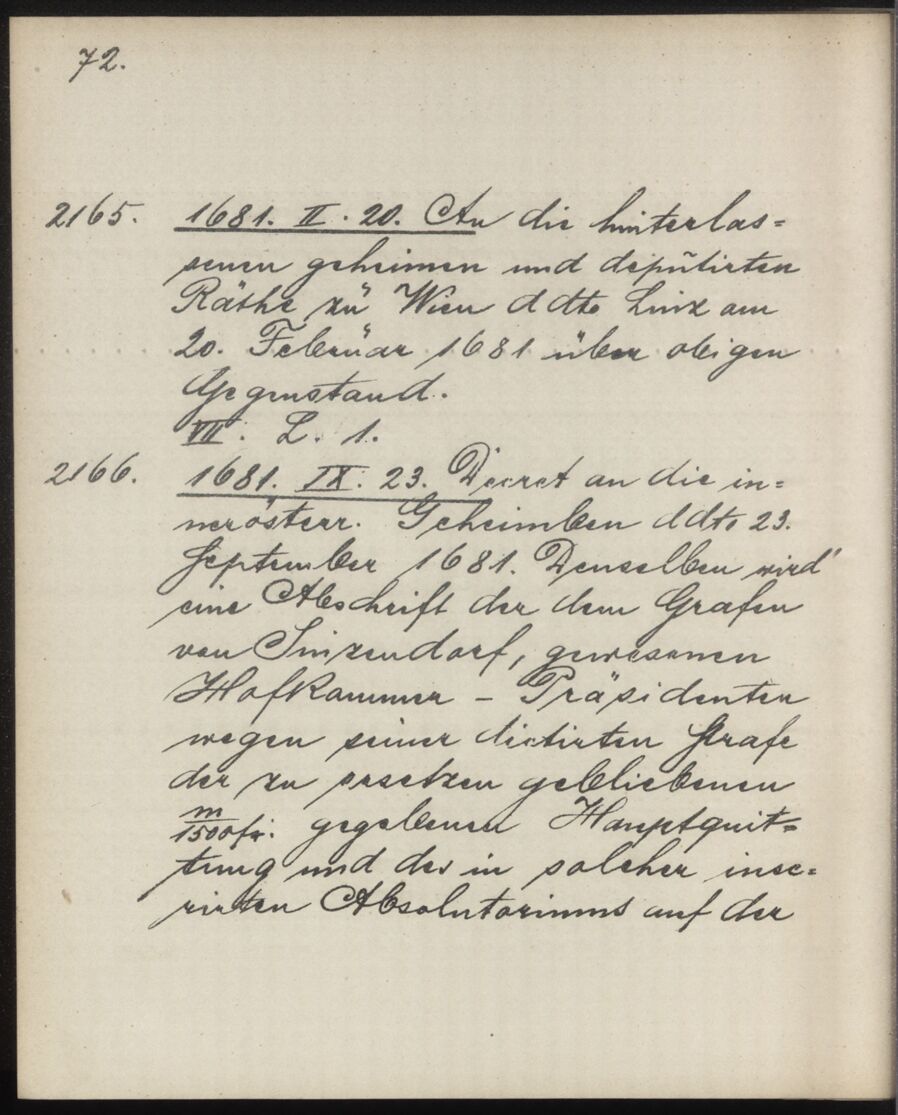 72.
2165. 1681. II. 20. An die hinterlas=
senen geheimen und deputirten
Räthe zu Wien ddto Linz am
20. Februar 1681 über obigen
Gegenstand.
VII. L. 1.
2166. 1681. IX. 23. Decret an die in=
nerösterr. Geheimben ddto 23.
September 1681. Denselben wird
eine Abschrift der dem Grafen
von Sinzendorf, gewesenen
Hofkammer - Präsidenten
wegen seiner dictirten Strafe
der zu ersetzen gebliebenen
m/1500 fr. gegebenen Hauptquit=
tung und des in solcher inse=
rirten Absolutoriums auf der